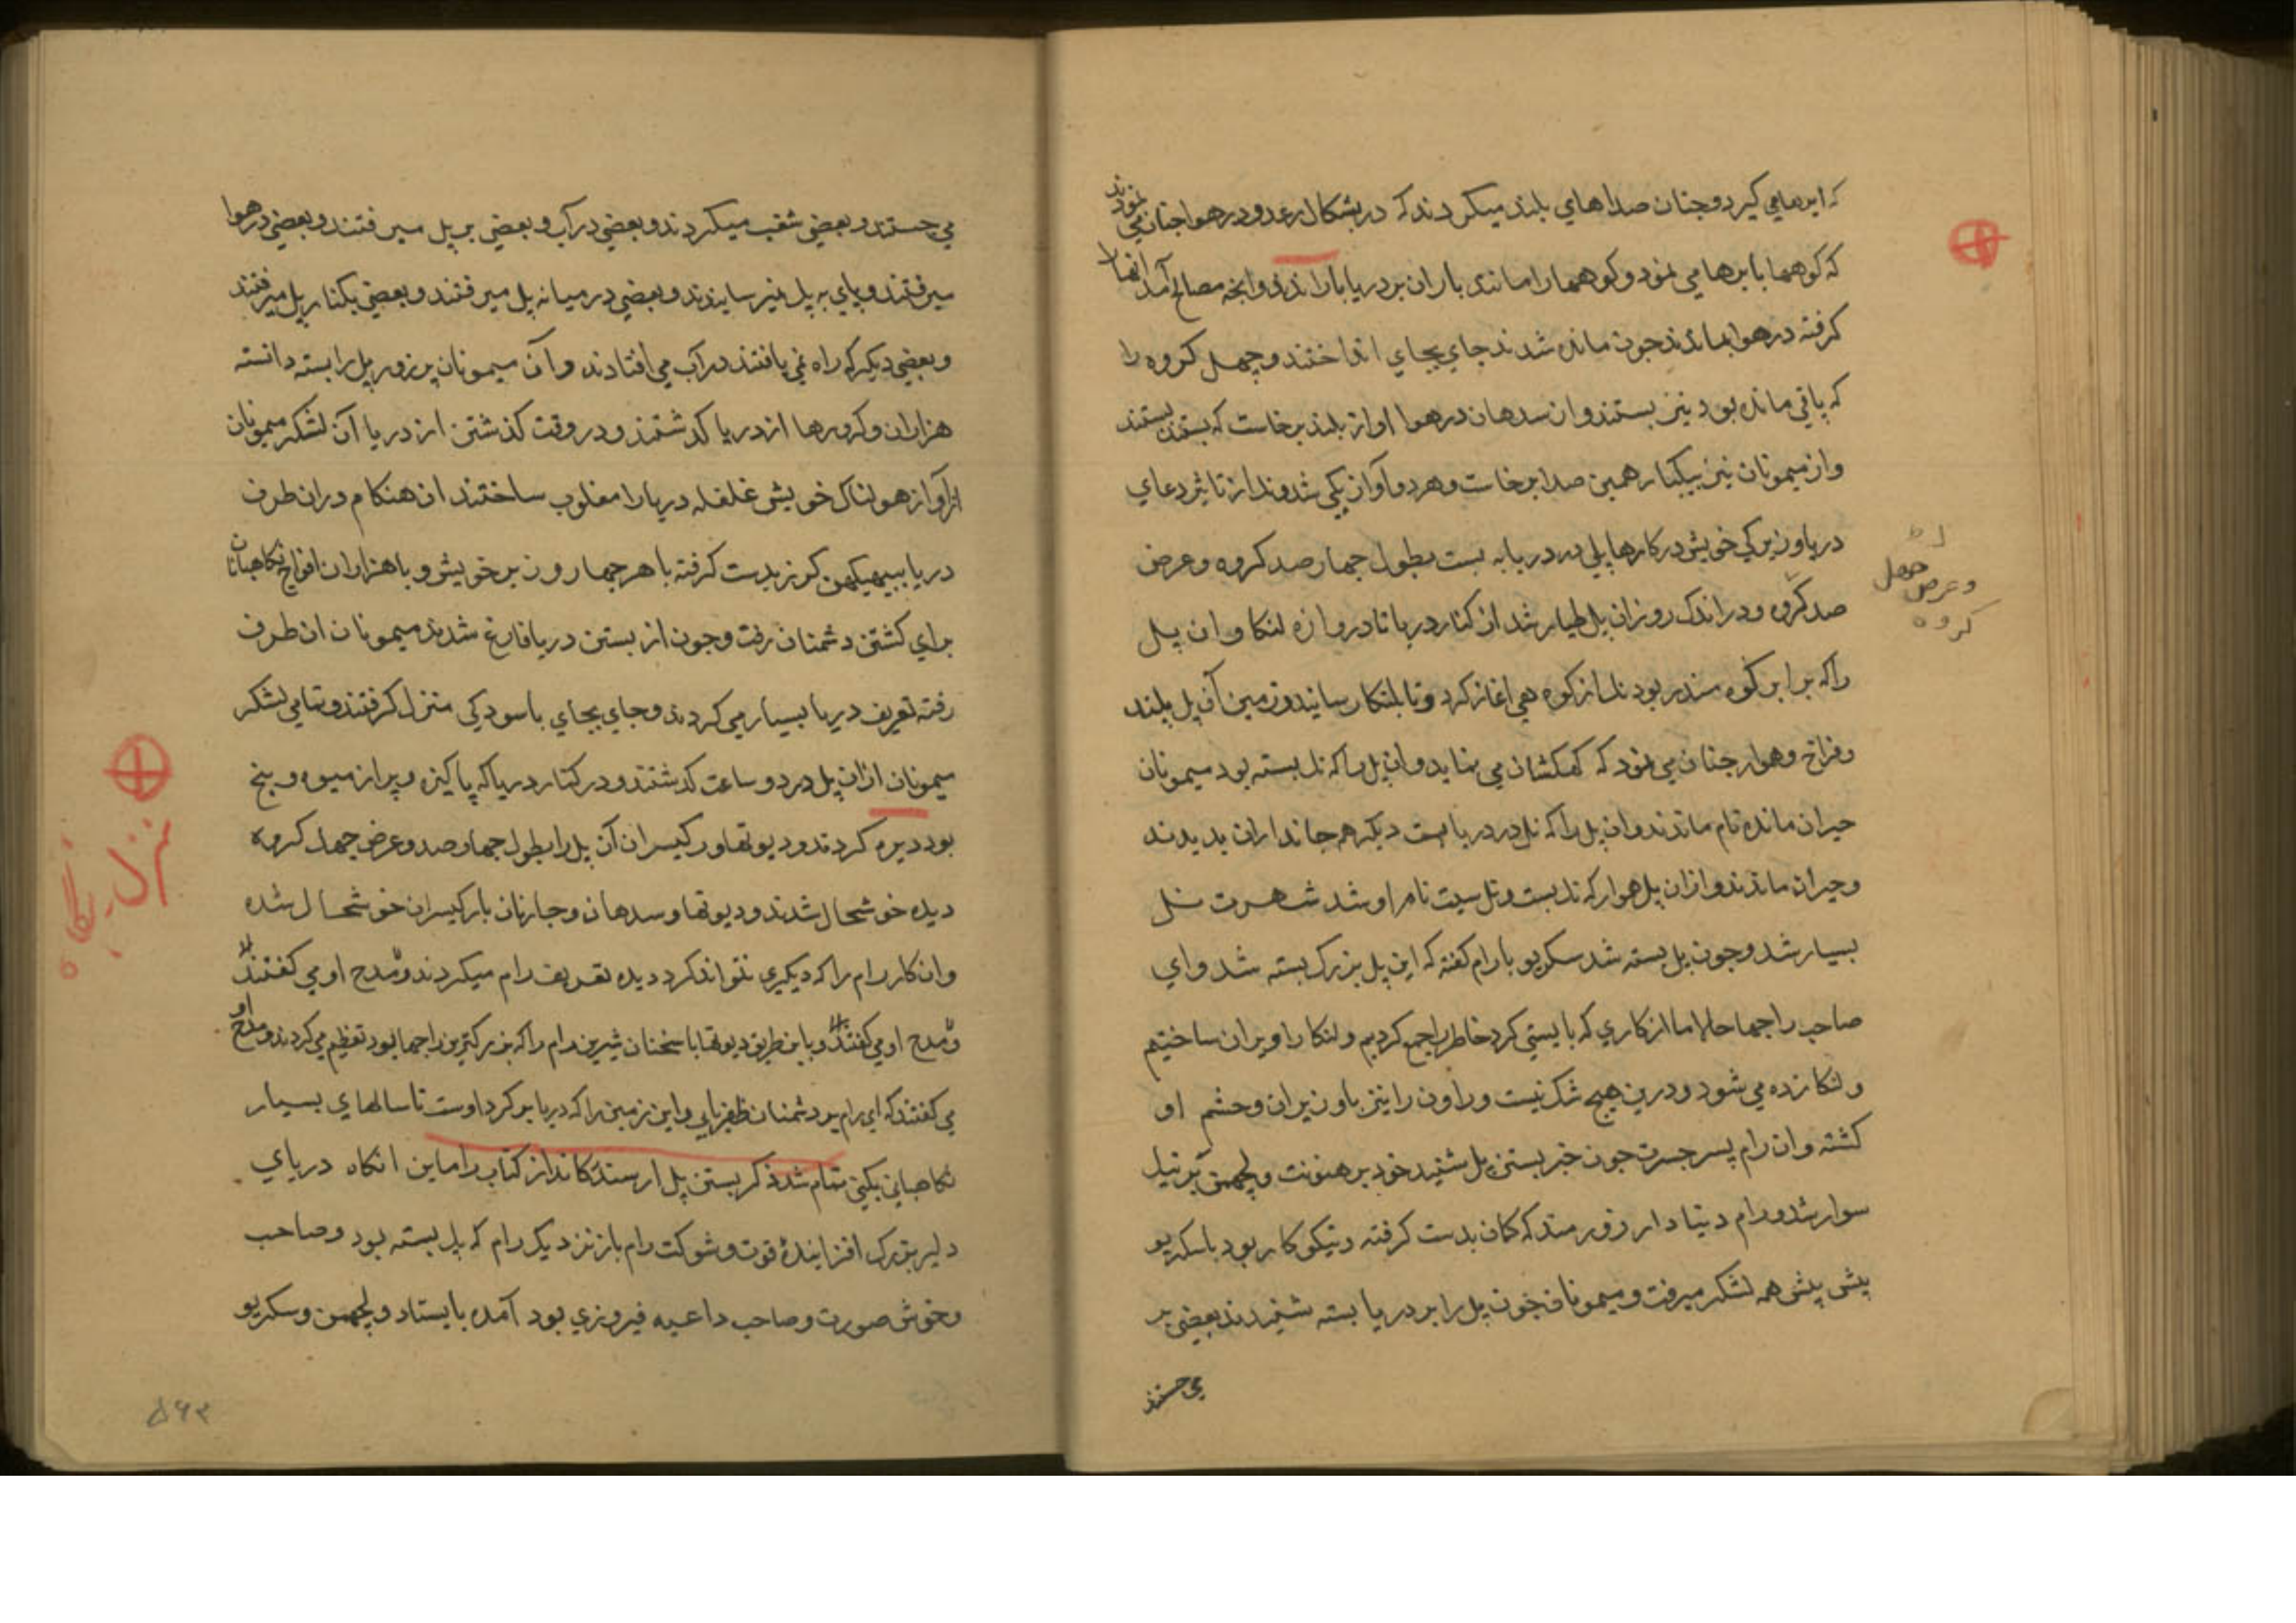 که ابرها می گیرد و چنان صداهای بلند میکردند که در بشکال رعد و در هوا چنان می نمودند
که کوهها با برها می نمود و کوهها را مانند باران بر دریا باراندند و انچه مصالح آمد انها را
گرفته در هوا بماندند چون مانده شدند جای بجای انداختند و چهل کروه را
که باقی مانده بود نیز بستند و ان سدهان در هوا اواز بلند برخاست که بستند بستند
و از میمونان نیز بیکبار همین صدا برخاست و هر دو آواز یکی شدند و از تاثیر دعای
دریا و بزرکی خویش در کارها پلی بر دریا به بست بطول چهار صد کروه و عرض
صد کروه و در اندک روز ان پل طیار شد از کنار دریا تا دروازه لنکا و ان پل
را که برابر کوه مندر بود نل از کوه هی اغاز کرد و تا بلنکا رسانید و زمین آن پل بلند
و فراخ و هموار چنان می نمود که کهکشان می نماید و ان پل را که نل بسته بود میمونان
حیران مانده تمام ماندند و ان پل را که نل در دریا بست دیکر هم جانداران بدیدند
و حیران ماندند و ازان پل هموار که نل بست و نل سیت نام او شد شهرت نل
بسیار شد و چون پل بسته شد سکریو با رام کفته که این پل بزرک بسته شد و ای
صاحب راجها حالا ما از کاری که بایستی کرد خاطر را جمع کردیم و لنکا را ویران ساختیم
و لنکا زده می شود و درین هیچ شک نیست و راون را نیز با وزیران و حشم او
کشته و ان رام پسر جسرت چون خبر بستن پل شنید خود بر هنونت و لچهمن بر نیل
سوار شد و رام دنیادار زورمند که کمان بدست کرفته و نیکوکار بود با سکریو
پیش پیش همه لشکر میرفت و میمونان چون پل را بر دریا بسته شنیدند بعضی بر
می جستند
وعرض چهل
کروه
می جستند و بعضی شغب میکردند و بعضی در آب و بعضی بر پل میرفتند و بعضی در هوا
میرفتند و پای به پل نمیرسانیدند و بعضی در میانه پل میرفتند و بعضی بکنار پل میرفتند
و بعضی دیکر که راه نمی یافتند در آب می افتادند و آن میمونان پر زور پل را بسته دانسته
هزاران و کرورها از دریا کذشتند و در وقت کذشتن از دریا آن لشکر میمونان
از آواز هولناک خویش غلغله دریا را مغلوب ساختند ان هنکام دران طرف
دریا ببهیکهن کرز بدست کرفته با هر چهار وزیر خویش و با هزاران افواج نکاهبانان
برای کشتن دشمنان رفت و چون از بستن دریا فارغ شدند میمونان ان طرف
رفته تعریف دریا بسیار می کردند و جای بجای باسودکی منزل کرفتند و تمامی لشکر
میمونان ازان پل در دو ساعت کذشتند و در کنار دریا که پاکیزه و پر از میوه و بیخ
بود دیره کردند و دیوتها و رکیسران آن پل را بطول چهار صد و عرض چهل کروه
دیده خوشحال شدند و دیوتها و سدهان و چارنان با رکیسران خوشحال شده
و ان کار رام را که دیکری نتواند کرد دیده تعریف رام میکردند و مدح او می کفتند
و مدح او می کفتند و باین طریق دیوتها با سخنان شیرین رام را که بزرکترین راجها بود تعظیم می کردند و مدح او
می کفتند که ای رام بر دشمنان ظفر یابی و این زمین را که دریا بر کرد اوست تا سالهای بسیار
نکاهبانی بکنی تمام شد ذکر بستن پل از سندکاند از کتاب راماین انکاه دریای
دلیر بزرک افزاینده قوت و شوکت رام باز نزدیک رام که پل بسته بود و صاحب
و خوش صورت و صاحب داعیه فیروزی بود آمده بایستاد و لچهمن و سکریو
نزل گاه
۵۶۳